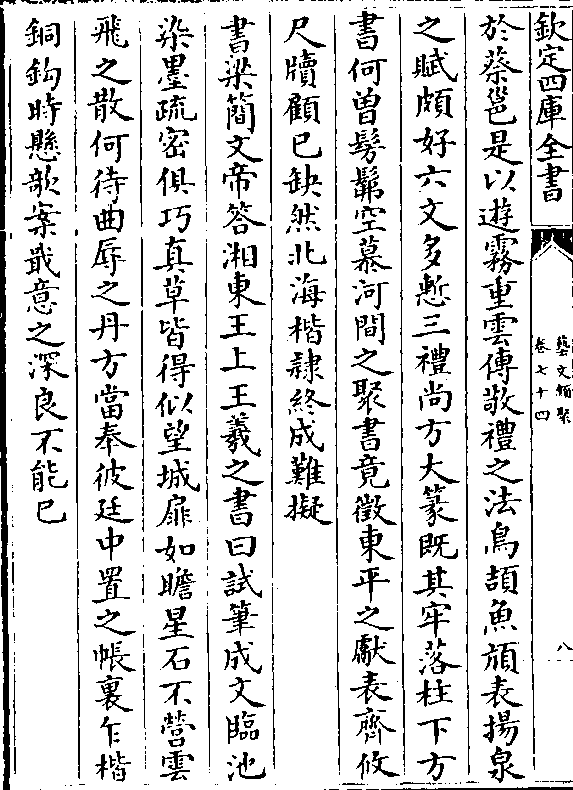 欽定四庫全書
藝文類聚
卷七十四
八
於蔡邕是以遊霧重雲傳敬禮之法鳥頡魚頏表揚泉
之賦頗好六文多慙三禮尚方大篆既其牢落柱下方
書何曾髣髴空慕河間之聚書竟徵東平之獻表齊攸
尺牘顧已缺然北海楷隷終成難擬
書梁簡文帝答湘東王上王羲之書曰試筆成文臨池
染墨疏密俱巧真草皆得似望城扉如瞻星石不營雲
飛之散何待曲辱之丹方當奉彼廷中置之帳裏乍楷
銅鈎時懸欹案戢意之深良不能已